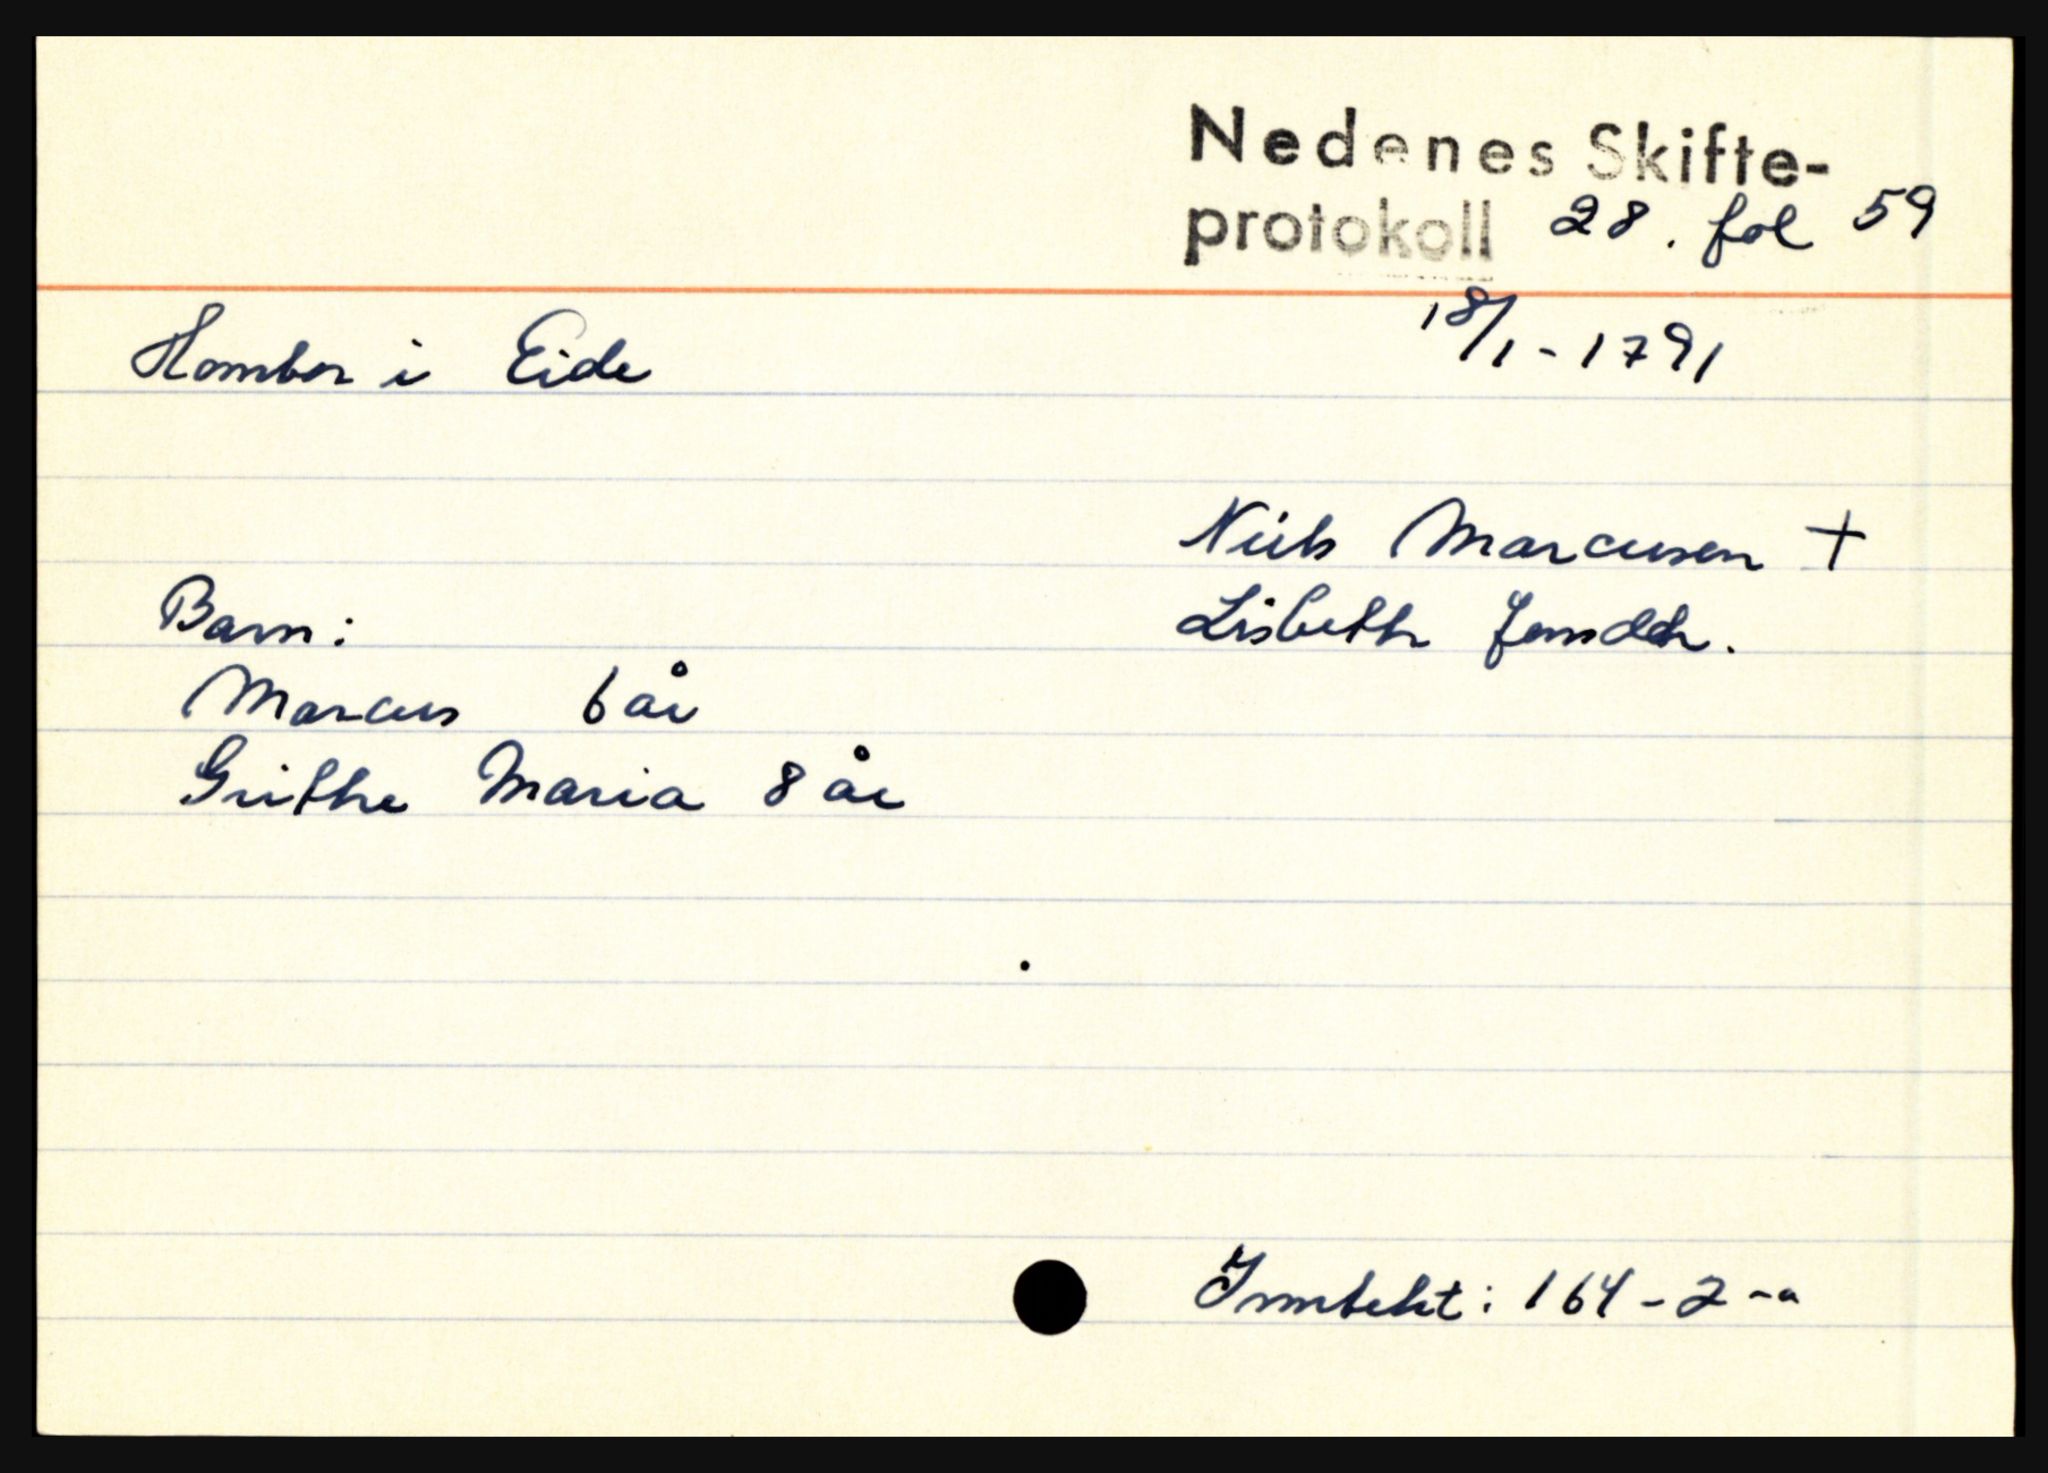 Nedenes Skifte-
protokoll 28. fol 59
Hombor i Eide 18/1-1791
Niels Marcusen +
Barn: Lisbeth Jensdtr.
Marcus 6 år
Grithe Maria 8 år
Inntekt: 164-2-a